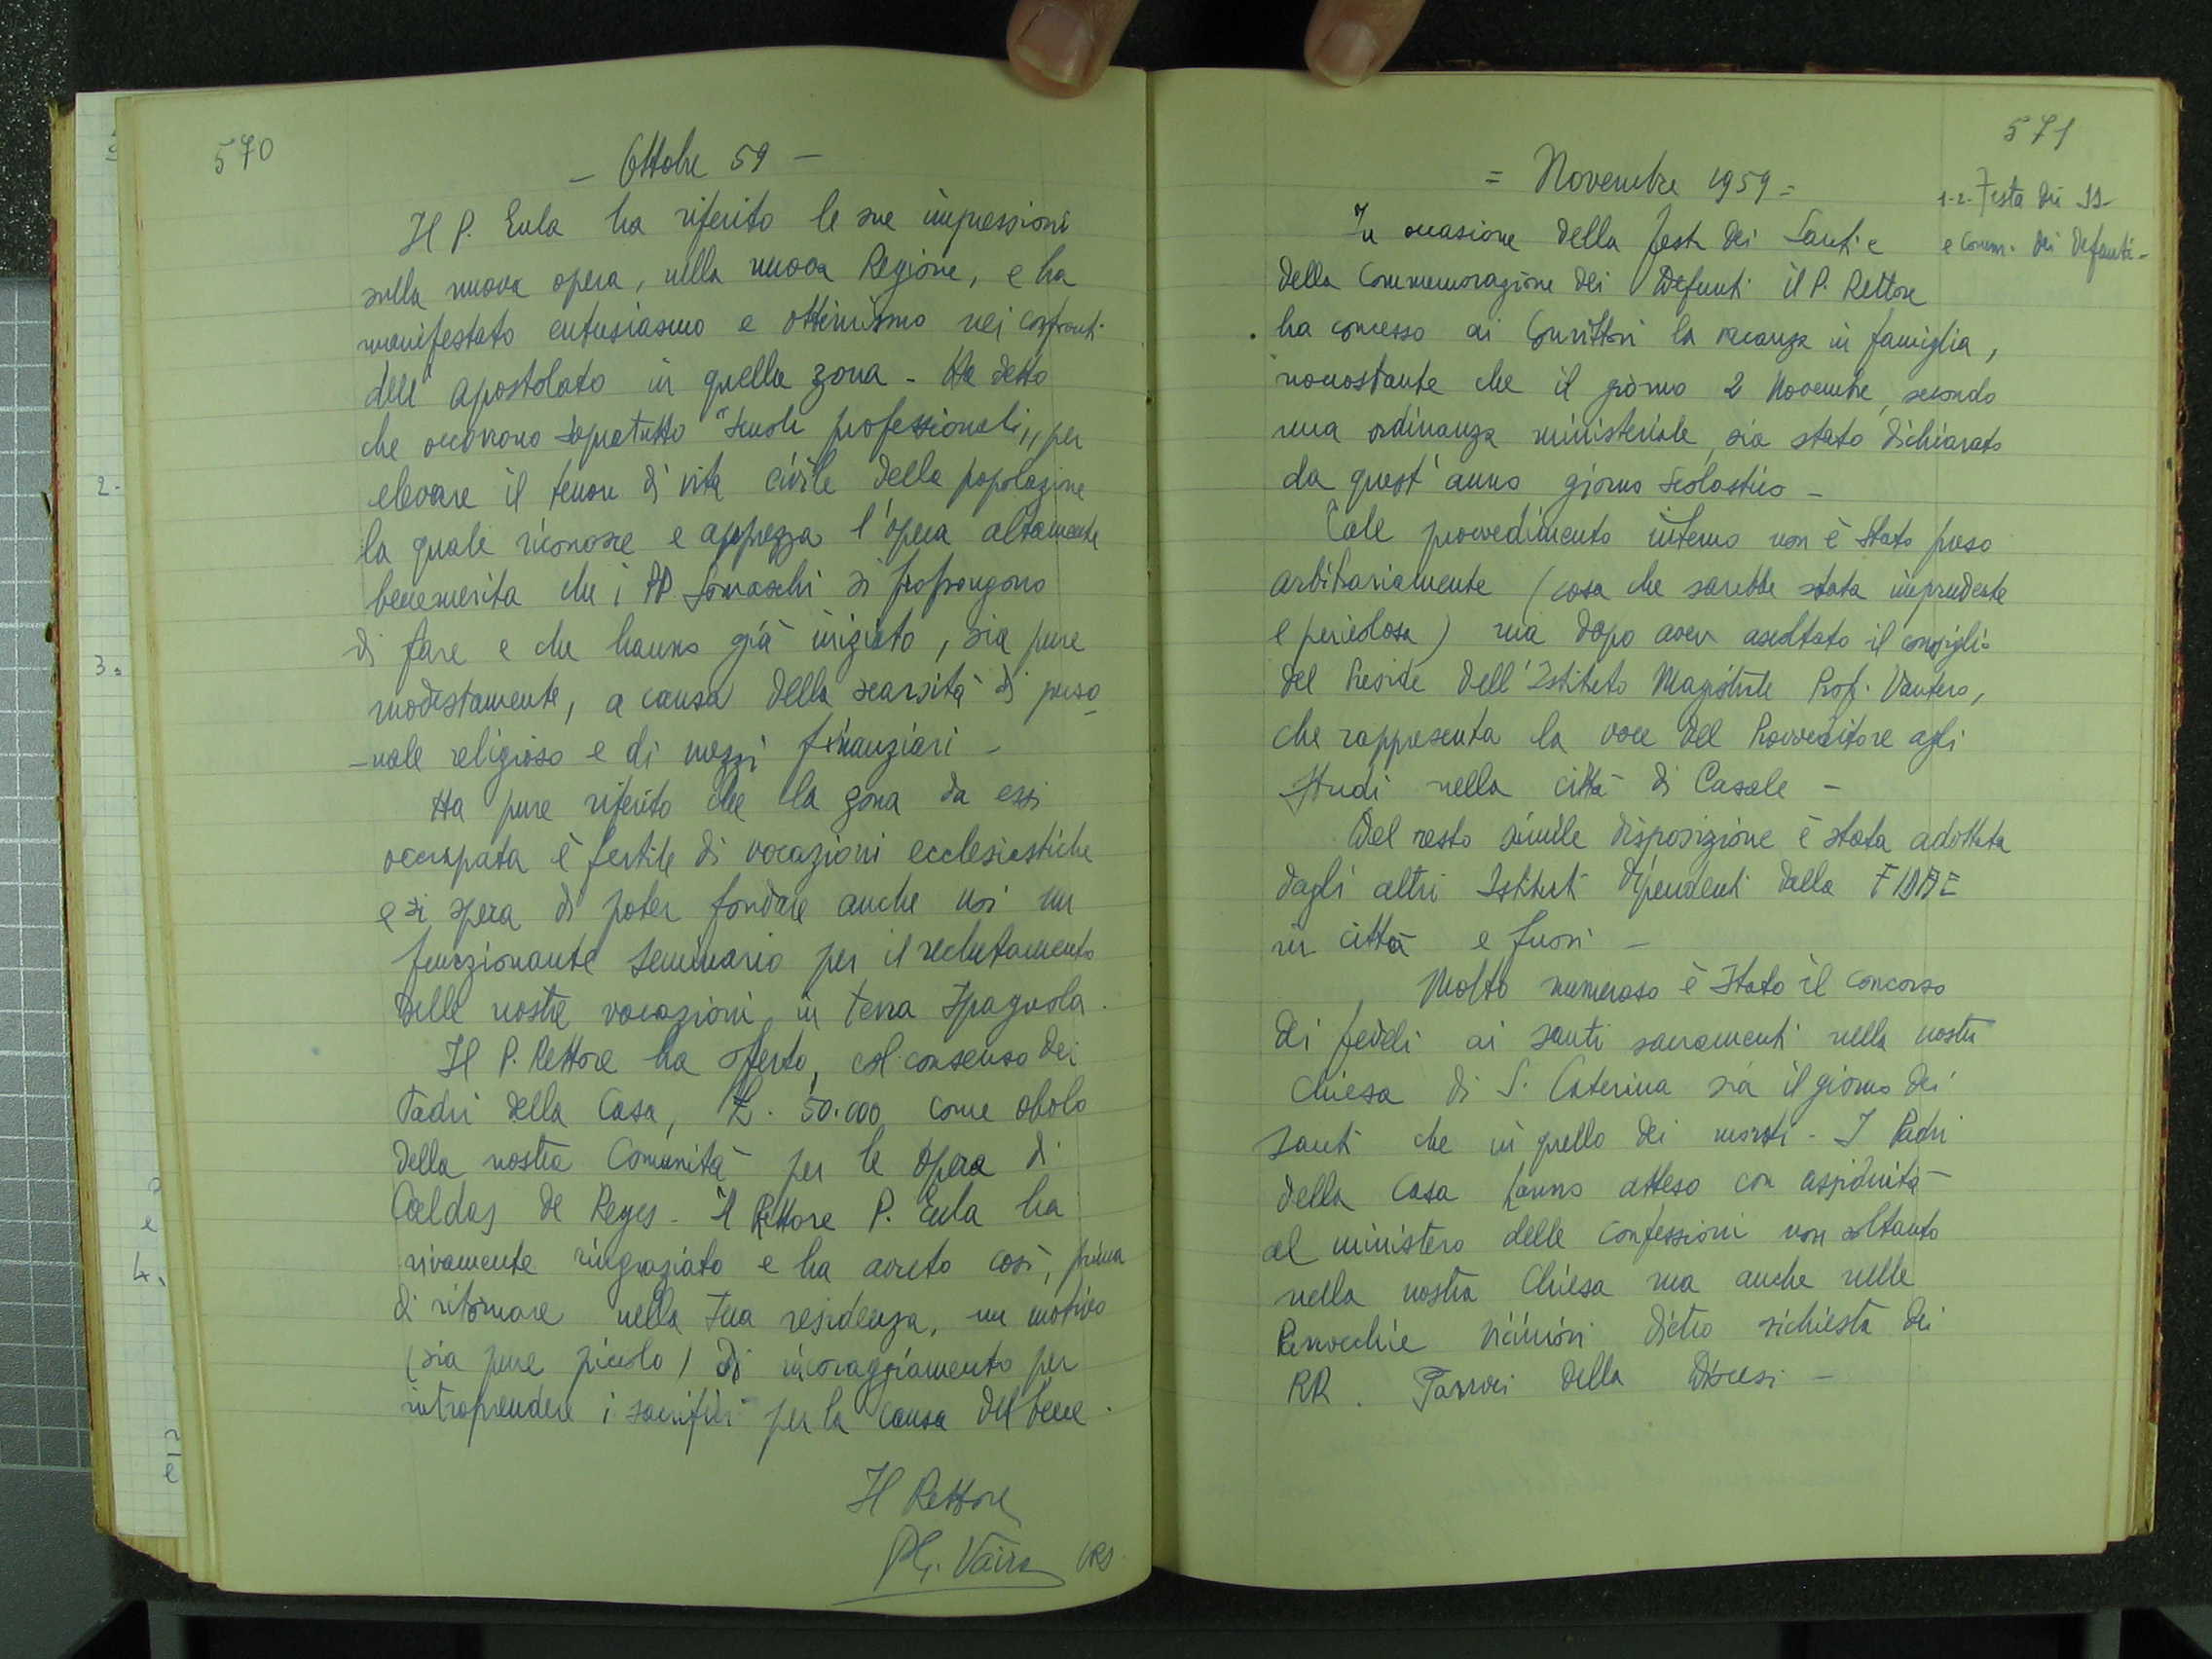 570
- Ottobre 59 -
Il P. Eula ha riferito le sue impressioni
sulla nuova opera, nella nuova Regione, e ha
manifestato entusiasmo e ottimismo nei confronti
dell'apostolato in quella zona - Ha detto
che occorrono sopratutto "scuole professionali,, per
elevare il tenore di vita civile della popolazione
la quale riconosce e apprezza l'opera altamente
benemerita che i PP. Somaschi si propongono
di fare e che hanno già iniziato, sia pure
modestamente, a causa della scarsità di perso
-nale religioso e di mezzi finanziari -
Ha pure riferito che la zona da essi
occupata è fertile di vocazioni ecclesiastiche
e si spera di poter fondare anche noi un
funzionante seminario per il reclutamento
delle nostre vocazioni in terra Spagnola.
Il P. Rettore ha offerto, col consenso dei
Padri della Casa, £. 50.000 come obolo
della nostra Comunità per le opera di
Caldas de Reyes - Il Rettore P. Eula ha
vivamente ringraziato e ha avuto così, prima
di ritornare nella sua residenza, un motivo
(sia pure piccolo) di incoraggiamento per
intraprendere i sacrifici per la causa del bene.
Il Rettore
Vaira CRS.
2-
3=
4.
571
= Novembre 1959 =
1-2. Festa dei SS-
e Comm. dei defunti-
In occasione della festa dei Santi e
della Commemorazione dei Defunti il P. Rettore
ha concesso ai Convittori la vacanza in famiglia,
nonostante che il giorno 2 Novembre, secondo
una ordinanza ministeriale, sia stato dichiarato
da quest'anno giorno scolastico -
Tale provvedimento interno non è stato preso
arbitrariamente (cosa che sarebbe stata imprudente
e pericolosa) ma dopo aver ascoltato il consiglio
del Preside dell'Istituto Magistrale Prof. Vantero,
che rappresenta la voce del Provveditore agli
Studi nella città di Casale -
Del resto simile disposizione è stata adottata
dagli altri Istituti dipendenti dalla FIDAE
in città e fuori -
Molto numeroso è stato il concorso
di fedeli ai santi sacramenti nella nostra
Chiesa di S. Caterina sia il giorno dei
santi che in quello dei morti - I Padri
della Casa hanno atteso con assiduità
al ministero delle confessioni non soltanto
nella nostra Chiesa ma anche nelle
Parrocchie viciniori dietro richiesta dei
RR. Parroci della Diocesi -